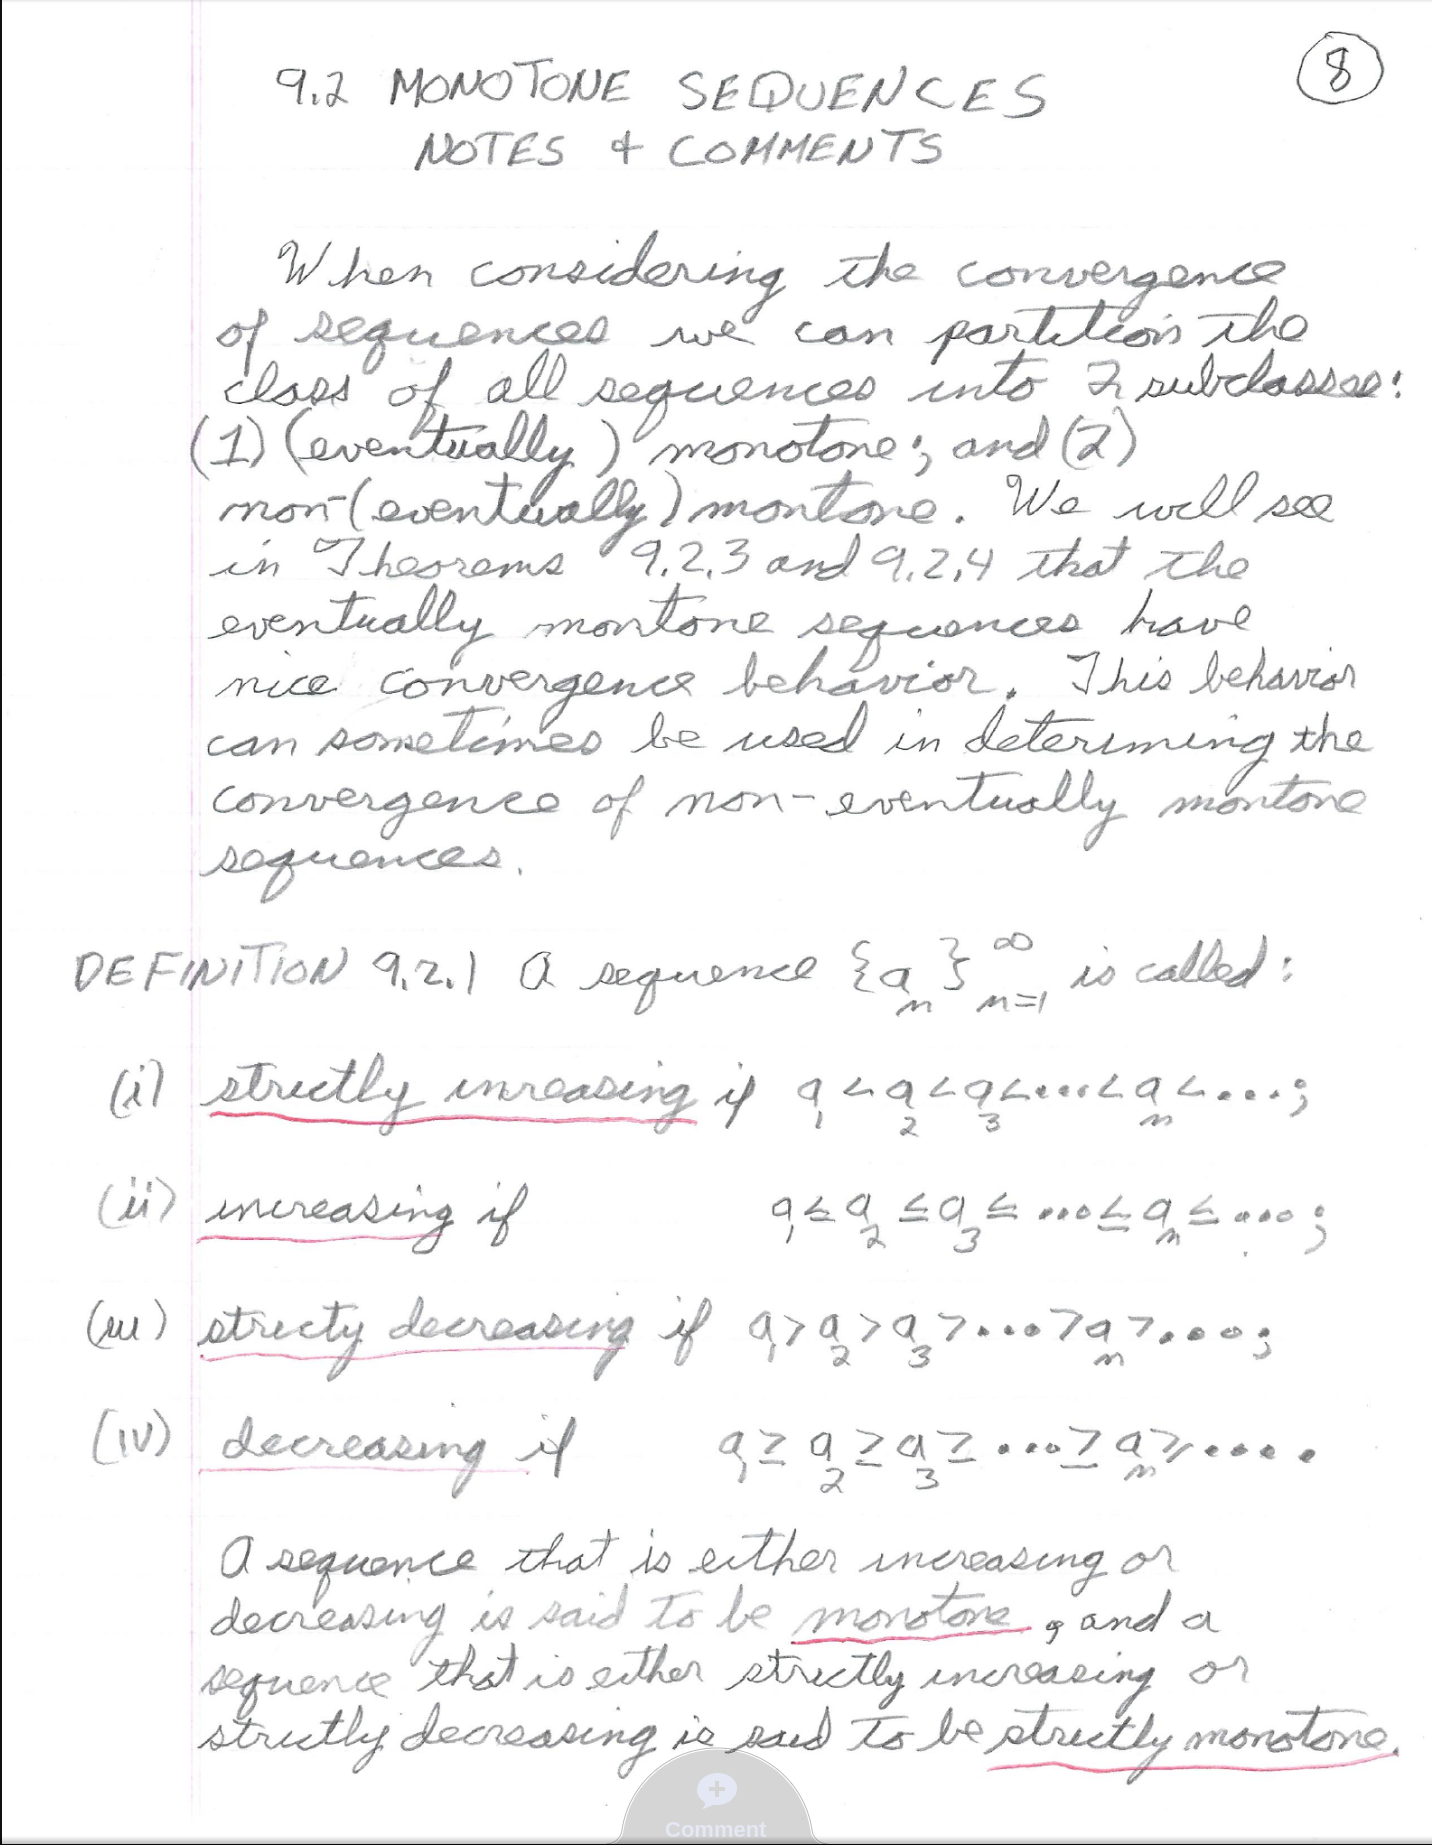 8
9.2 MONOTONE SEQUENCES
NOTES & COMMENTS
When considering the convergence
of sequences we can partition the
class of all sequences into 2 subclasses:
(1) (eventually) monotone; and (2)
non-(eventually) montone. We will see
in Theorems 9.2.3 and 9.2.4 that the
eventually montone sequences have
nice convergence behavior. This behavior
can sometimes be used in determing the
convergence of non-eventually montone
sequences.
DEFINITION 9.2.1 A sequence {a_n}_{n=1}^∞ is called:
(i) strictly increasing if a_1 < a_2 < a_3 < ... < a_n < ...;
(ii) increasing if a_1 ≤ a_2 ≤ a_3 ≤ ... ≤ a_n ≤ ...;
(iii) stricty decreasing if a_1 > a_2 > a_3 > ... > a_n > ...;
(iv) decreasing if a_1 ≥ a_2 ≥ a_3 ≥ ... ≥ a_n ≥ ....
A sequence that is either increasing or
decreasing is said to be monotone, and a
sequence that is either strictly increasing or
strictly decreasing is said to be strictly monotone.
Comment